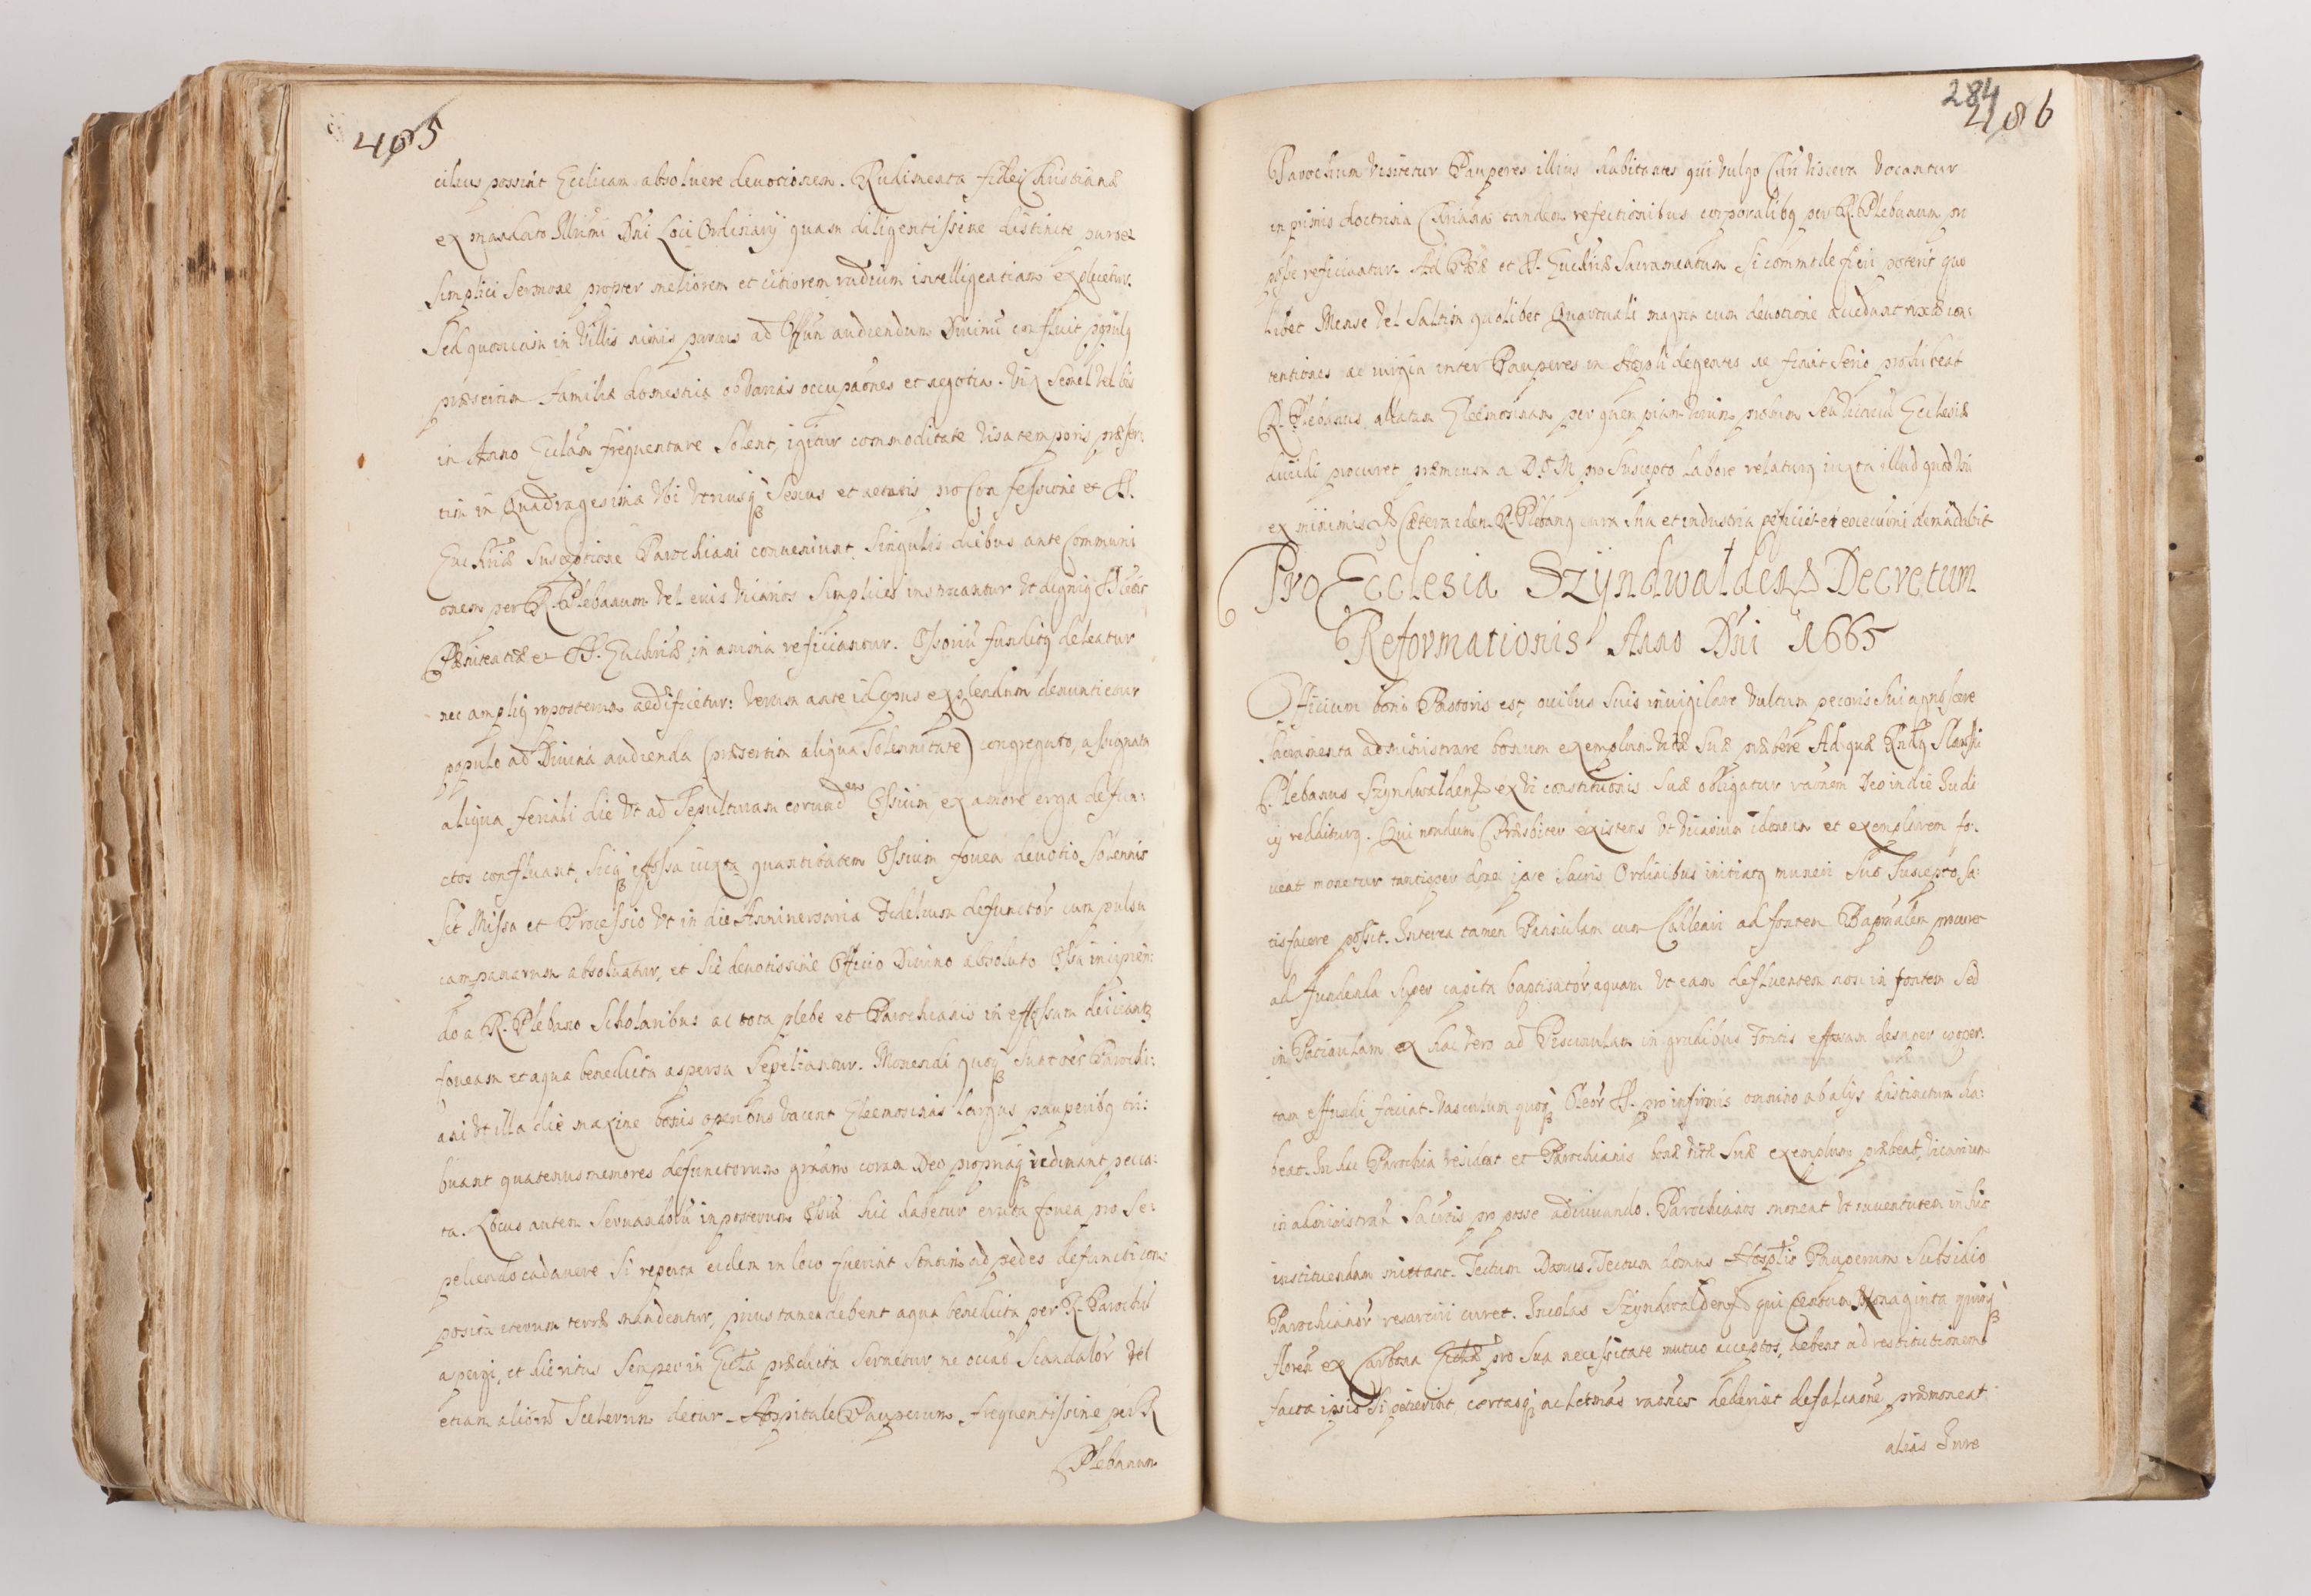 485
cilius possint Ecclicam absoluere deuotionem. Rudimenta fidei Christianæ
ex mandato Illůmi Dni Loci Ordinarij quam diligentissime distincte puro et
Simplici Sermone propter meliorem et citiorem rudium intelligentiam explicentur.
Sed quoniam in Villis nimis parcus ad Offum audiendum Diuinũ confluit populq
præsertim familiæ domestica ob varias occupaones et negotia. Vix Semel vel bis
in Anno Ecclam frequentare Solent, igitur commoditate visa temporis præser:
tim in Quadragesima Vbi Vtriusq Sexus et aetatis pro Confessione et SS.
Euchriæ Susceptione Parochiani conueniunt, Singulis diebus ante Communi
onem per R. Plebanum vel euis vicarios Simplices instruantur Vt dignių SS
Pænitentiæ et SS. Euchriæ in anima reficiantur. Ossoriũ funditq deleatur
nec ampliq imposterum aedificietur: verum ante id opus explendum denuntietur
populo ad Diuina audienda (præsertim aliqua Solennitate) congregato, assignata
aliqua feriali die Vt ad Sepulturam eorundem Ossium ex amore erga defun:
ctos confluant, Sicq effossa iuxta quantitatem Ossium fouea deuotio Solennis
Sit Missa et Processio Vt in die Anniuersaria Fidelium defunctor cum pulsu
campanarum absoluatur, et Sic deuotissime Officio Diuino absoluto Ossa incipien:
do a R. Plebano Scholaribus ac tota plebe et Parochianis in effossam deiiciantr
foueam et aqua benedicta aspersa Sepeliantur. Monendi quoq Sunt oēs Parochi:
ani Vt illa die maxime bonis operibus vacent Eleemosinas largas pauperibq tri:
buant quatenus memores defunctorum gratiam coram Deo propriaq redimant pecca:
ta. Locus autem Seruandorũ imposterum Ossiũ Sic habetur eruta fouea pro Se:
peliendo cadauere Si reperta eidem in loco fuerint Statim ad pedes defuncti con:
posita iterum terræ mandentur, prius tamen debent aqua benedicta per R. Parochũ
aspergi, et hic ritus Semper in Eccla prædicta Seruetur, ne occaõ Scandalor vel
etiam aliorũ Scelerum detur. Hospitale Pauperum frequentissime per R
Plebanum
284
486
Parochum Visitetur Pauperes illius habitantes qui Vulgo Chri Viscera Vocantur
in primis doctrina Chriana tandem refectionibus corporalibq per R. Plebanum pro
posse reficiantur. Ad Pæniæ et SS. Euchriæ Sacramentum Si commode fieri poterit quo
libet Mense vel Saltim quolibet Quartuali magna cum deuotione accedant rixæ con:
tentiones ac iurgia inter Pauperes in Hospli degentes ne fiant Serio prohibeat
R. Plebanus, allatam Eleemosinam per quempiam Virum probum Seu Vitricũ Ecclesiæ
diuidi procuret præmium a D. O. M. pro Suscepto labore relaturq iuxta illud quod Vni
ex minimis &c Cætera idem R. Plebanq cura Sua et industria pficiet et executioni demandabit
Pro Ecclesia Szyndwaldens Decretum
Reformationis Anno Dni 1665
Officium boni Pastoris est, ouibus Suis inuigilare Vultum pecoris Sui agnoscere
Sacramenta administrare bonum exemplum Vitæ Suæ præbere Ad quæ Rndq Sławski
Plebanus Szyndwaldens ex vi constitutionis Suæ obligatur raonem Deo in die Iudi
cij redditurq. Qui nondum Præsbiter existens Vt Vicarium idoneum et exemplarem fo:
ueat monetur tantisper donec ipse Sacris Ordinibus initiatq muneri Suo Suscepto Sa:
tisfacere possit. Interea tamen Patinulam cum Cocleari ad fontem Baptmalem procuret
ad fundenda Super capita baptisator, aquam Vt eam defluentem non in fontem Sed
in Patinulam ex hac vero ad Piscinulam in gradibus Fontis effossam desuper cooper:
tam effundi faciat. Vasculum quoq Oleor SS. pro infirmis omnino ab alijs distinctum ha:
beat. In hac Parochia resideat et Parochianis bonæ vitæ Suæ exemplum præbeat, Vicarium
in administran Sacrtis pro posse adiuuando. Parochianos moneat Vt iuuentutem in fide
instituendam mittant. Tectum Domus, Tectum domus Hosptlis Pauperum Subsidio
Parochianor resarciri curet. Incolas Szyndwaldens qui centum Nonaginta quinq
floren ex Carbona Ecclæ pro Sua necessitate mutuo acceptos, debent ad restitutionem
facta ipsis Si petierint certasq ac letmas raones dederint defalcaone, præmoneat
alias Iure